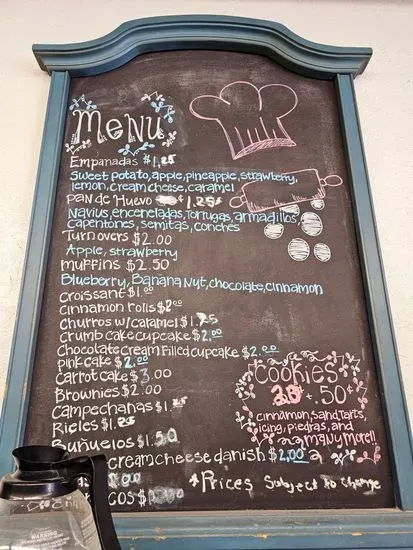 Menu
Empanadas $1.25
Sweet potato, apple, pineapple, strawberry,
lemon, cream cheese, caramel
Pan de Huevo $1.25¢
Navius, enceneladas, Tortugas, armadillos,
Capentones, Semitas, conches
Turnovers $2.00
Apple, strawberry
muffins $2.50
Blueberry, Banana Nut, chocolate, cinnamon
Croissant $1.00
cinnamon rolls $2.00
Churros w/caramel $1.25
Crumb cake cupcake $2.00
Chocolate cream filled cupcake $2.00
pink cake $2.00
Carrot cake $3.00
Brownies $2.00
Campechanas $1.25
Rieles $1.25
Buñuelos $1.50
cream cheese danish $2.00
Cookies
.50¢
cinnamon, sand tarts,
icing, piedras, and
many more!!
*Prices Subject To Change
WARNING